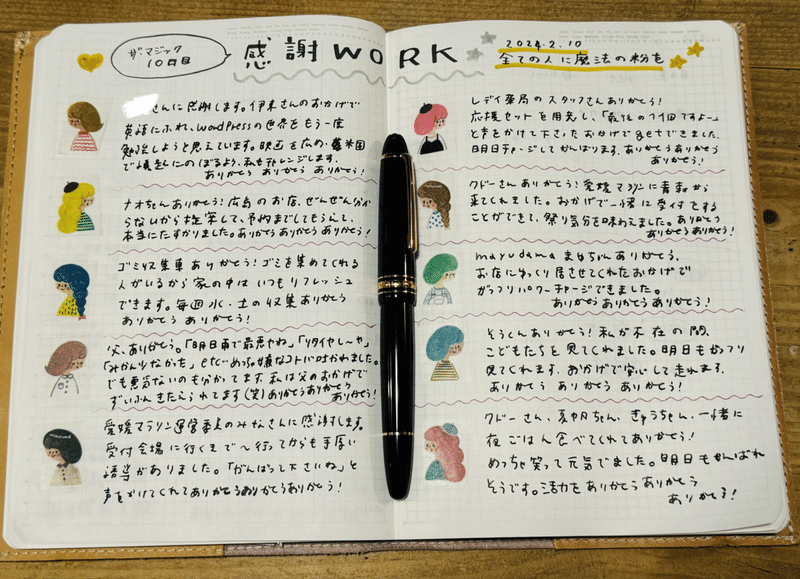 ザ・マジック
10日目
感謝WORK
2024.2.10
全ての人に魔法の粉を
さんに感謝します。伊東さんのおかげで
英語にふれ、wordPressの世界をもう一度
勉強しようと思えています。映画を広め、
で 私もチャレンジします。
ありがとう ありがとう ありがとう!
ナオちゃんありがとう!広島のお店、ぜんぜん分か
らないから提案して、予約までしてもらって、
本当にたすかりました。ありがとうありがとうありがとう!
ゴミ収集車ありがとう!ゴミを集めてくれる
人がいるから家の中はいつもリフレッシュ
できます。毎週水・土の収集ありがとう
ありがとう ありがとう!
父、ありがとう。「明日雨で最悪やね」「リタイヤし〜や」
「みかん少なかった」etcめっちゃ嫌なコトバ吐かれました。
でも悪気ないのも分かってます。私は父のおかげで
ずいぶんきたえられてます(笑)ありがとうありがとう
ありがとう!
愛媛マラソン運営委員のみなさんに感謝します。
受付会場に行くまで〜行ってからも手厚い
誘導がありました。「がんばって下さいね」と
声をかけてくれてありがとうありがとうありがとう!
レデイ薬局のスタッフさんありがとう!
応援セットを用意し、「最後の1個ですよー」
と声をかけて下さったおかげでgetできました。
明日チャージしてがんばります。ありがとうありがとう
ありがとう!
クドーさんありがとう!愛媛マラソンに青森から
来てくれました。おかげで一緒に受付をする
ことができて、祭り気分を味わえました。ありがとう
ありがとうありがとう!
mayudama まゆちゃんありがとう。
お店にゆっくり居させてくれたおかげで
がっつりパワーチャージできました。
ありがとうありがとうありがとう!
そうくんありがとう!私が不在の間、
こどもたちを見てくれました。明日もがっつり
見てくれます。おかげで安心して走れます。
ありがとう ありがとう ありがとう!
クドーさん、夏帆ちゃん、きゅうちゃん、一緒に
夜ごはん食べてくれてありがとう!
めっちゃ笑って元気でました。明日もがんばれ
そうです。活力をありがとうありがとう
ありがとう!